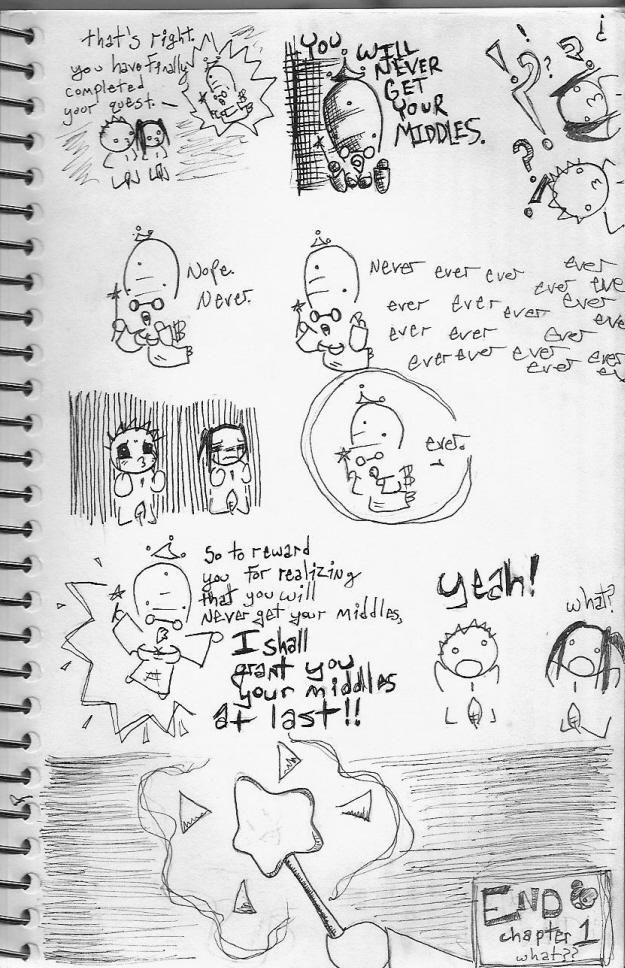 that's right.
you have finally
completed
your quest.
YOU WILL
NEVER
GET
YOUR
MIDDLES.
! ? ? ¿
? !
Nope.
Never.
Never ever ever ever
ever ever
ever ever ever ever
ever
ever ever ever
ever ever ever ever
ever
ever.
So to reward
you for realizing
that you will
Never get your middles,
I shall
grant you
your middles
At last!!
yeah!
what?
END
chapter 1
what??